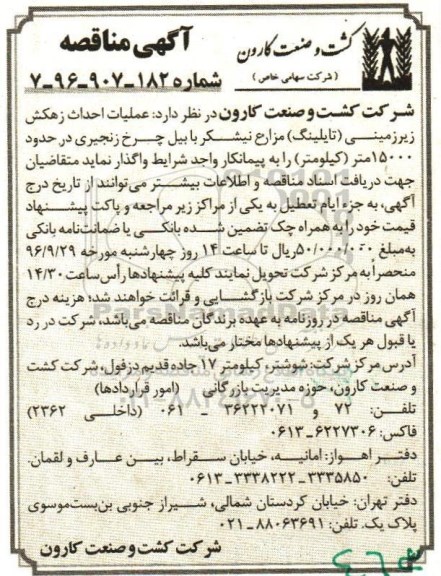 کشت و صنعت کارون
(شرکت سهامی خاص)
آگهی مناقصه
شماره ۱۸۲-۹۰۷-۹۶-۷
شرکت کشت و صنعت کارون در نظر دارد: عملیات احداث زهکش
زیرزمینی (تایلینگ) مزارع نیشکر با بیل چرخ زنجیری در حدود
۱۵۰۰۰ متر (کیلومتر) را به پیمانکار واجد شرایط واگذار نماید متقاضیان
جهت دریافت اسناد مناقصه و اطلاعات بیشتر می‌توانند از تاریخ درج
آگهی، به جزء ایام تعطیل به یکی از مراکز زیر مراجعه و پاکت پیشنهاد
قیمت خود را به همراه چک تضمین شده بانکی یا ضمانت‌نامه بانکی
به مبلغ ۵۰/۰۰۰/۰۰۰ ریال تا ساعت ۱۴ روز چهارشنبه مورخه ۹۶/۹/۲۹
منحصراً به مرکز شرکت تحویل نمایند کلیه پیشنهادها رأس ساعت ۱۴/۳۰
همان روز در مرکز شرکت بازگشایی و قرائت خواهند شد؛ هزینه درج
آگهی مناقصه در روزنامه به عهده برندگان مناقصه می‌باشد، شرکت در رد
یا قبول هر یک از پیشنهادها مختار می‌باشد.
آدرس مرکز شرکت: شوشتر، کیلومتر ۱۷ جاده قدیم دزفول، شرکت کشت
و صنعت کارون، حوزه مدیریت بازرگانی (امور قراردادها)
تلفن: ۷۲ و ۳۶۲۲۲۰۷۱ - ۰۶۱ (داخلی ۲۳۶۲)
فاکس: ۶۲۲۷۳۰۶-۰۶۱۳
دفتر اهواز: امانیه، خیابان سقراط، بین عارف و لقمان.
تلفن: ۳۳۳۵۸۵۰-۳۳۳۸۲۲۲-۰۶۱۳
دفتر تهران: خیابان کردستان شمالی، شیراز جنوبی بن‌بست موسوی
پلاک یک. تلفن: ۸۸۰۶۳۶۹۱-۰۲۱
شرکت کشت و صنعت کارون